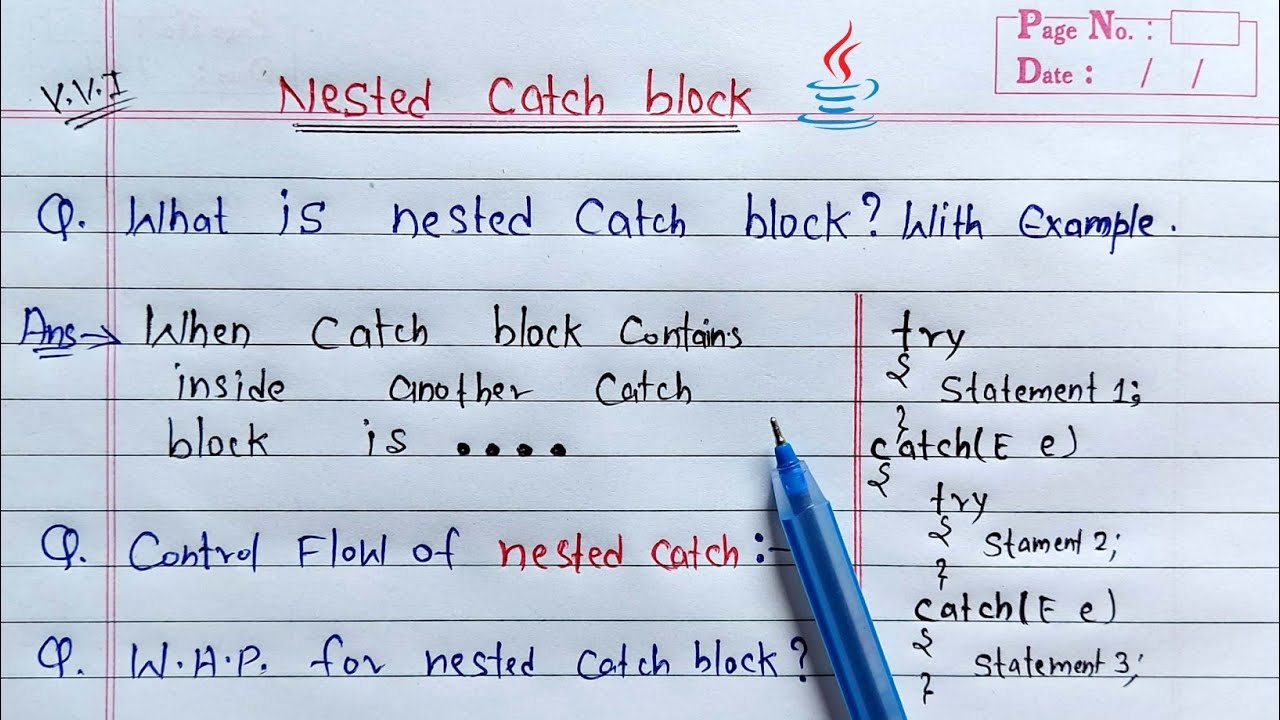 Page No. :
Date : / /
V.V.I
Nested Catch block
Q. What is nested Catch block? With Example.
Ans→ When Catch block Contains
inside another Catch
block is ....
Q. Control Flow of nested catch :-
Q. W.A.P. for nested catch block?
try
{
Statement 1;
}
catch(E e)
{
try
{
Stament 2;
}
catch(E e)
{
Statement 3;
}